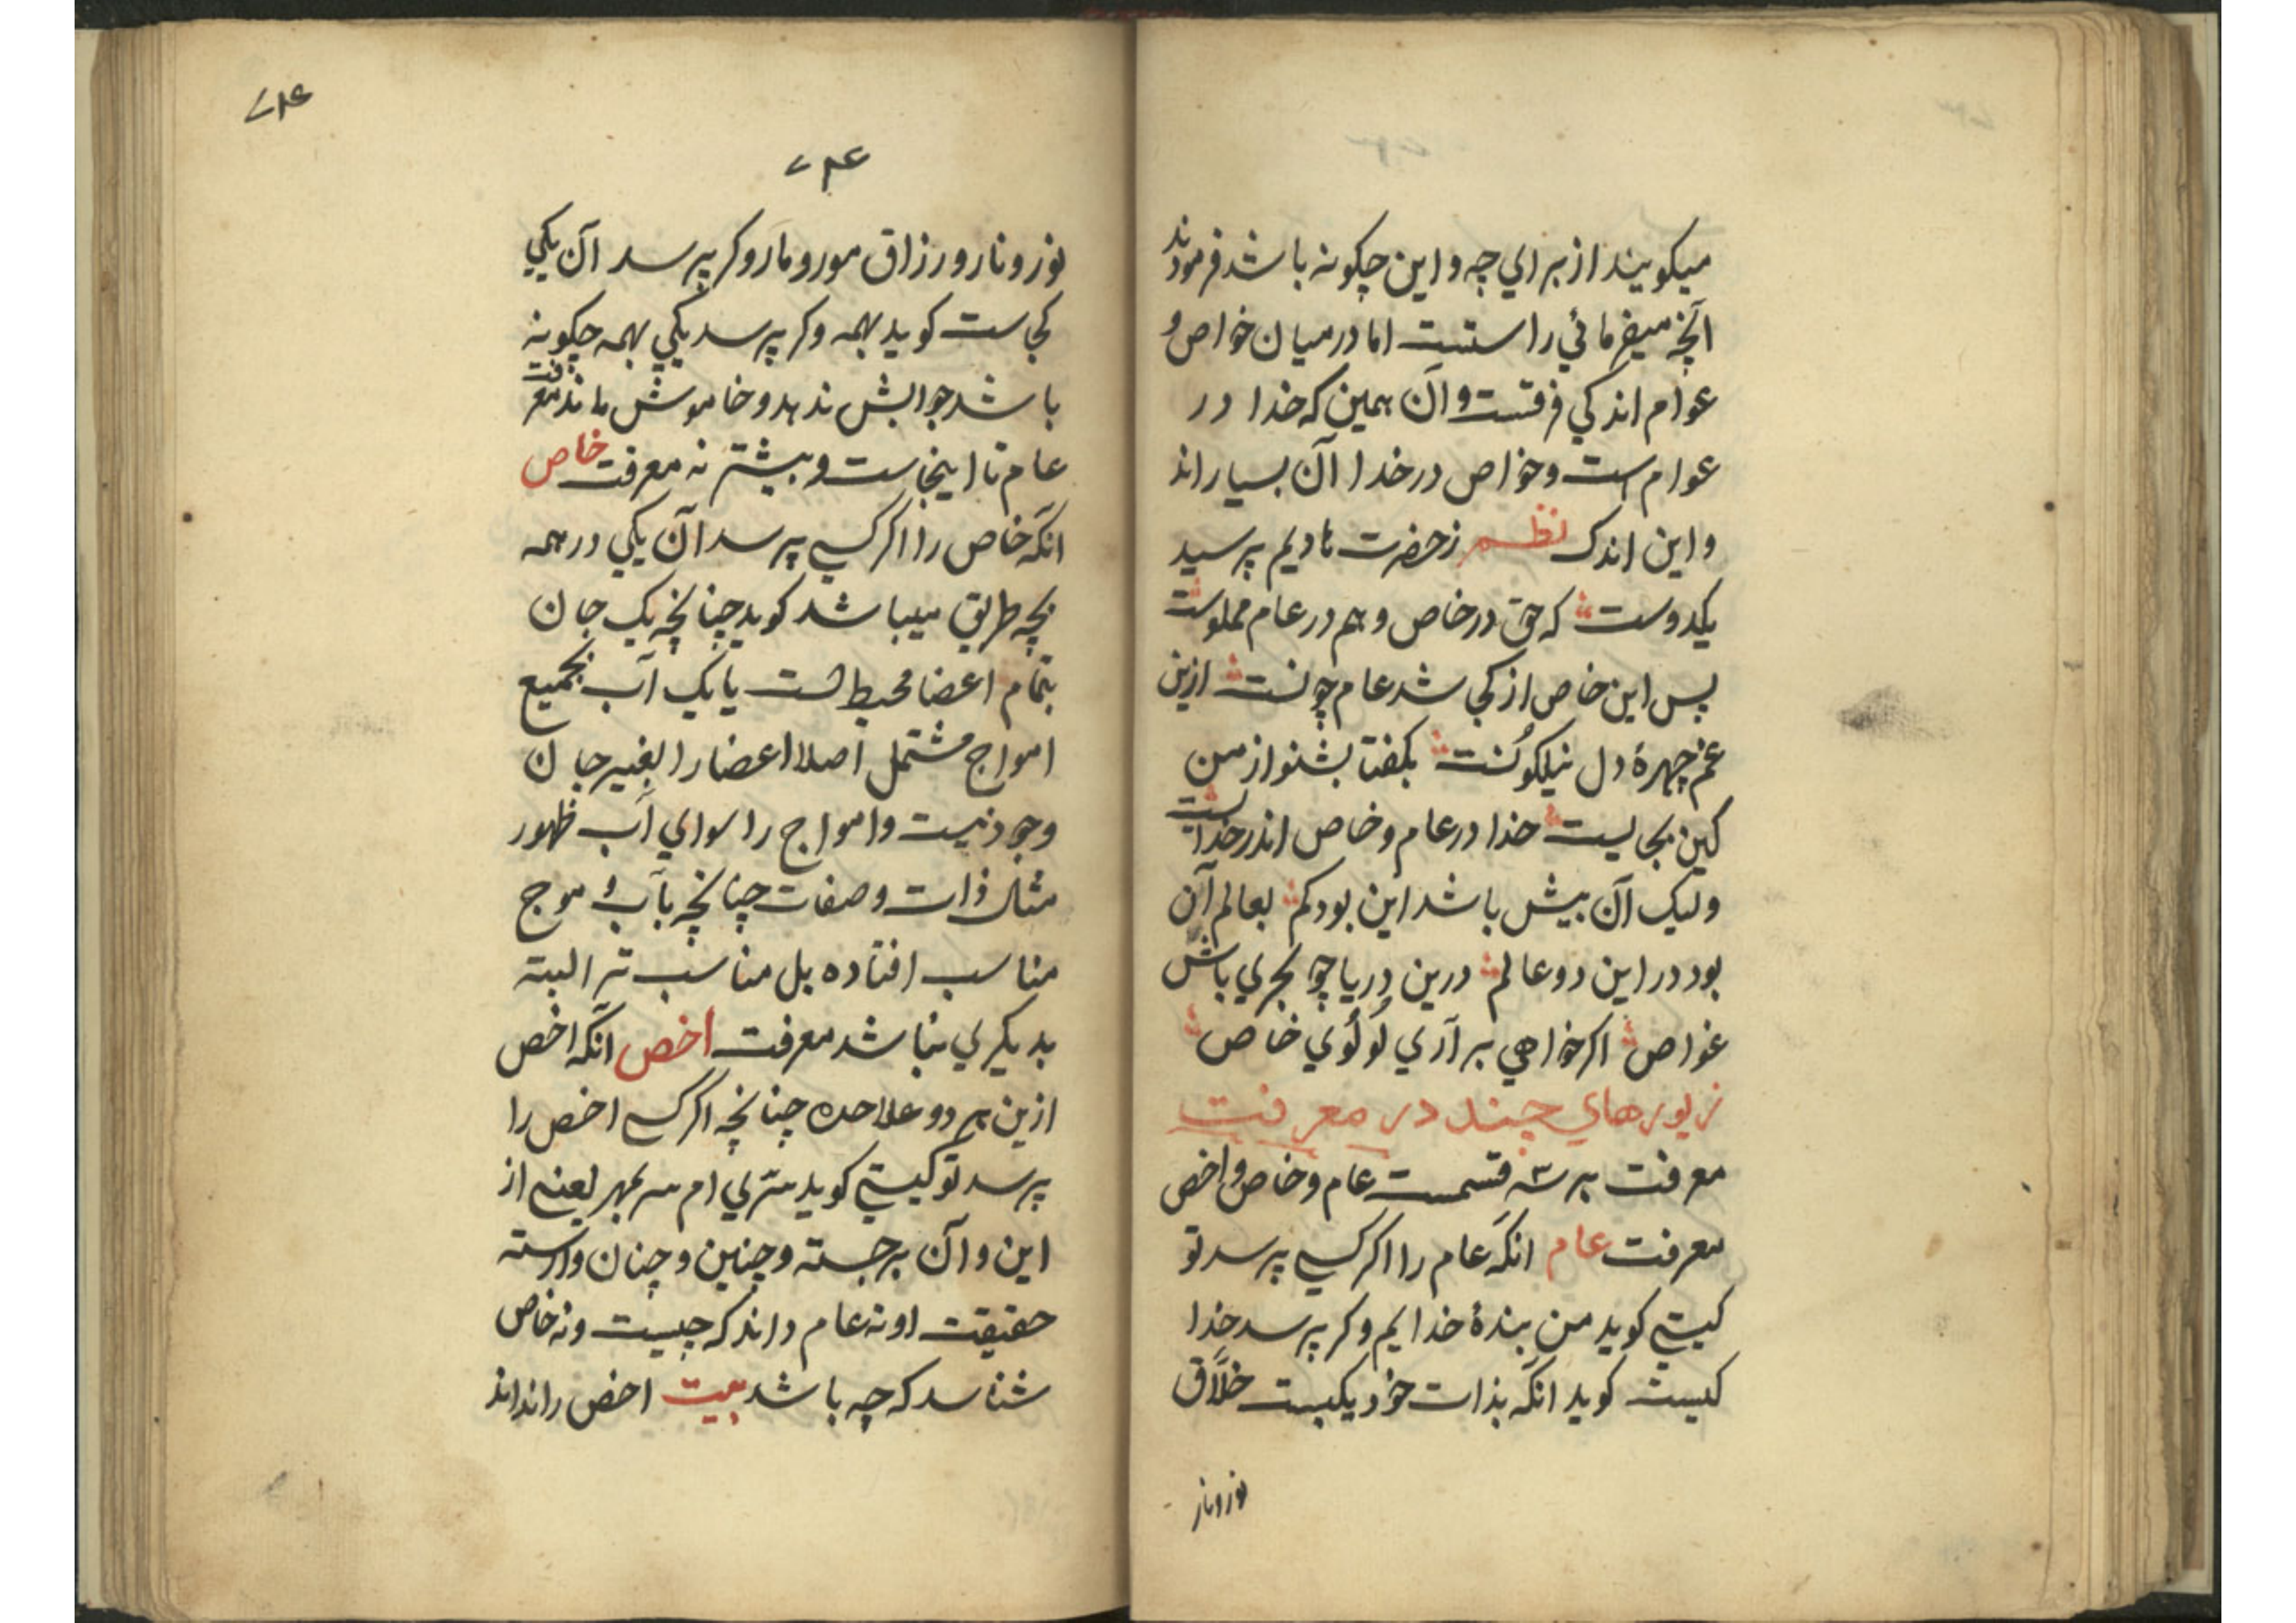 میکویند از برای چه و این چکونه باشد فرمودند
آنچه میفرمائی راستست اما در میان خواص و
عوام اندکی فرقست و آن همین که خدا در
عوام است و خواص در خدا آن بسیارند
و این اندک نظم ز حضرت نادیم پرسید
یکدوست که حق در خاص و هم در عام مملوست
پس این خاص از کجا شد عام چونست ازین
غم چهرهٔ دل نیلکونست بکفتا بشنو از من
کین بجایست خدا در عام و خاص اندر خداست
ولیک آن بیش باشد این بود کم بعالم آن
بود در این دو عالم درین دریا چو بحری باش
غواص اکر خواهی برآری لولوی خاص
زیورهای چند در معرفت
معرفت بر سه قسمست عام و خاص و اخص
معرفت عام آنکه عام را اکر کسی پرسد تو
کیستی کوید من بندهٔ خدایم و کر پرسد خدا
کیست کوید آنکه بذات خود یکیست خلّاق
نور و نار
۷۱۴
۷۱۴
نور و نار و رزاق مور و مار و کر پرسد آن یکی
کجاست کوید بهمه و کر پرسد یکی بهمه چکونه
باشد جوابش ندهد و خاموش ماند معرفت
عام تا اینجاست و بیشتر نه معرفت خاص
آنکه خاص را اکر کسی پرسد آن یکی در همه
بچه طریق میباشد کوید چنانچه یک جان
بتمام اعضا محیط است یا یک آب بجمیع
امواج مشتمل اصلا اعضا را بغیر جان
وجود نیست و امواج را سوای آب ظهور
مثال ذات و صفات چنانچه بآب و موج
مناسب افتاده بل مناسب تر البته
بدیکری نباشد معرفت اخص آنکه اخص
ازین هر دو علاحده چنانچه اکر کسی اخص را
پرسد تو کیستی کوید سرّی ام سر بمهر یعنی از
این و آن برجسته و چنین و چنان وارسته
حقیقت او نه عام داند که چیست و نه خاص
شناسد که چه باشد بیت اخص را نداند